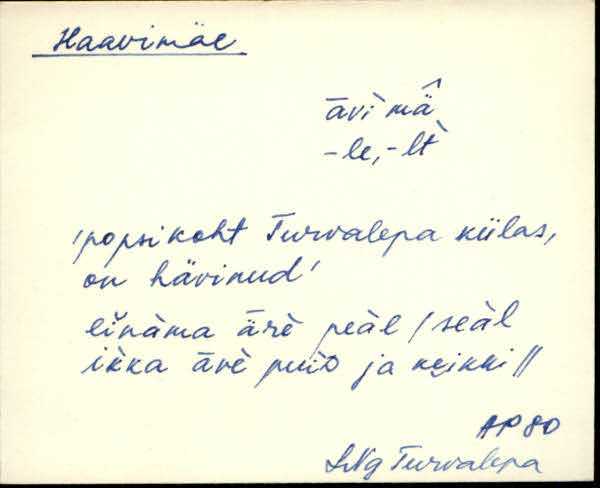 Haavimäe
āvì mä̂
-le, -lt̀
'popsikoht Turvalepa külas,
on hävinud'
ei̮nàma ärè peàl / seàl
ikka āvè puiD ja kei̮kki //
AP 80
LNg Turvalepa